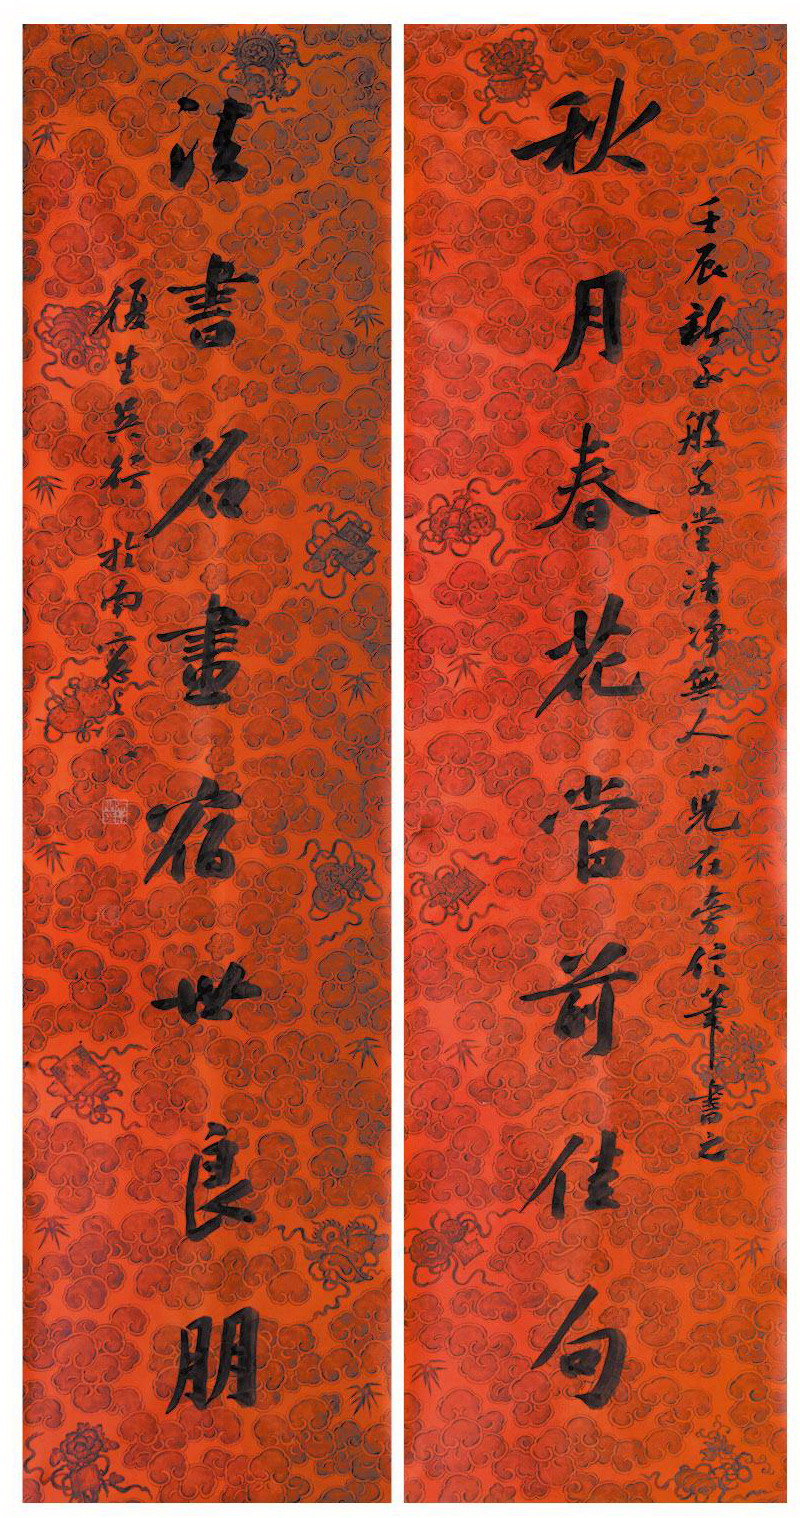 壬辰新 般若堂清净無人小兒在旁信筆書之
秋月春花當前佳句
法書名畫宿世良朋
後生吳行 於南窗